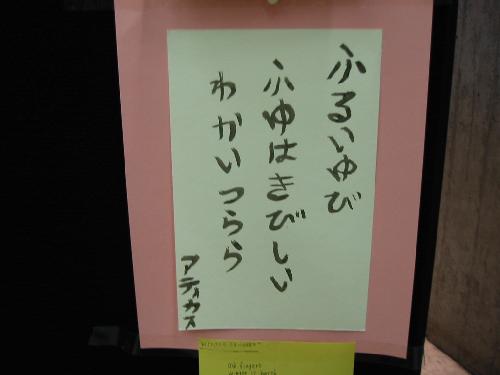 ふるいゆび
ふゆはきびしい
わかいつらら
アティカス
old fingers
winter is harsh